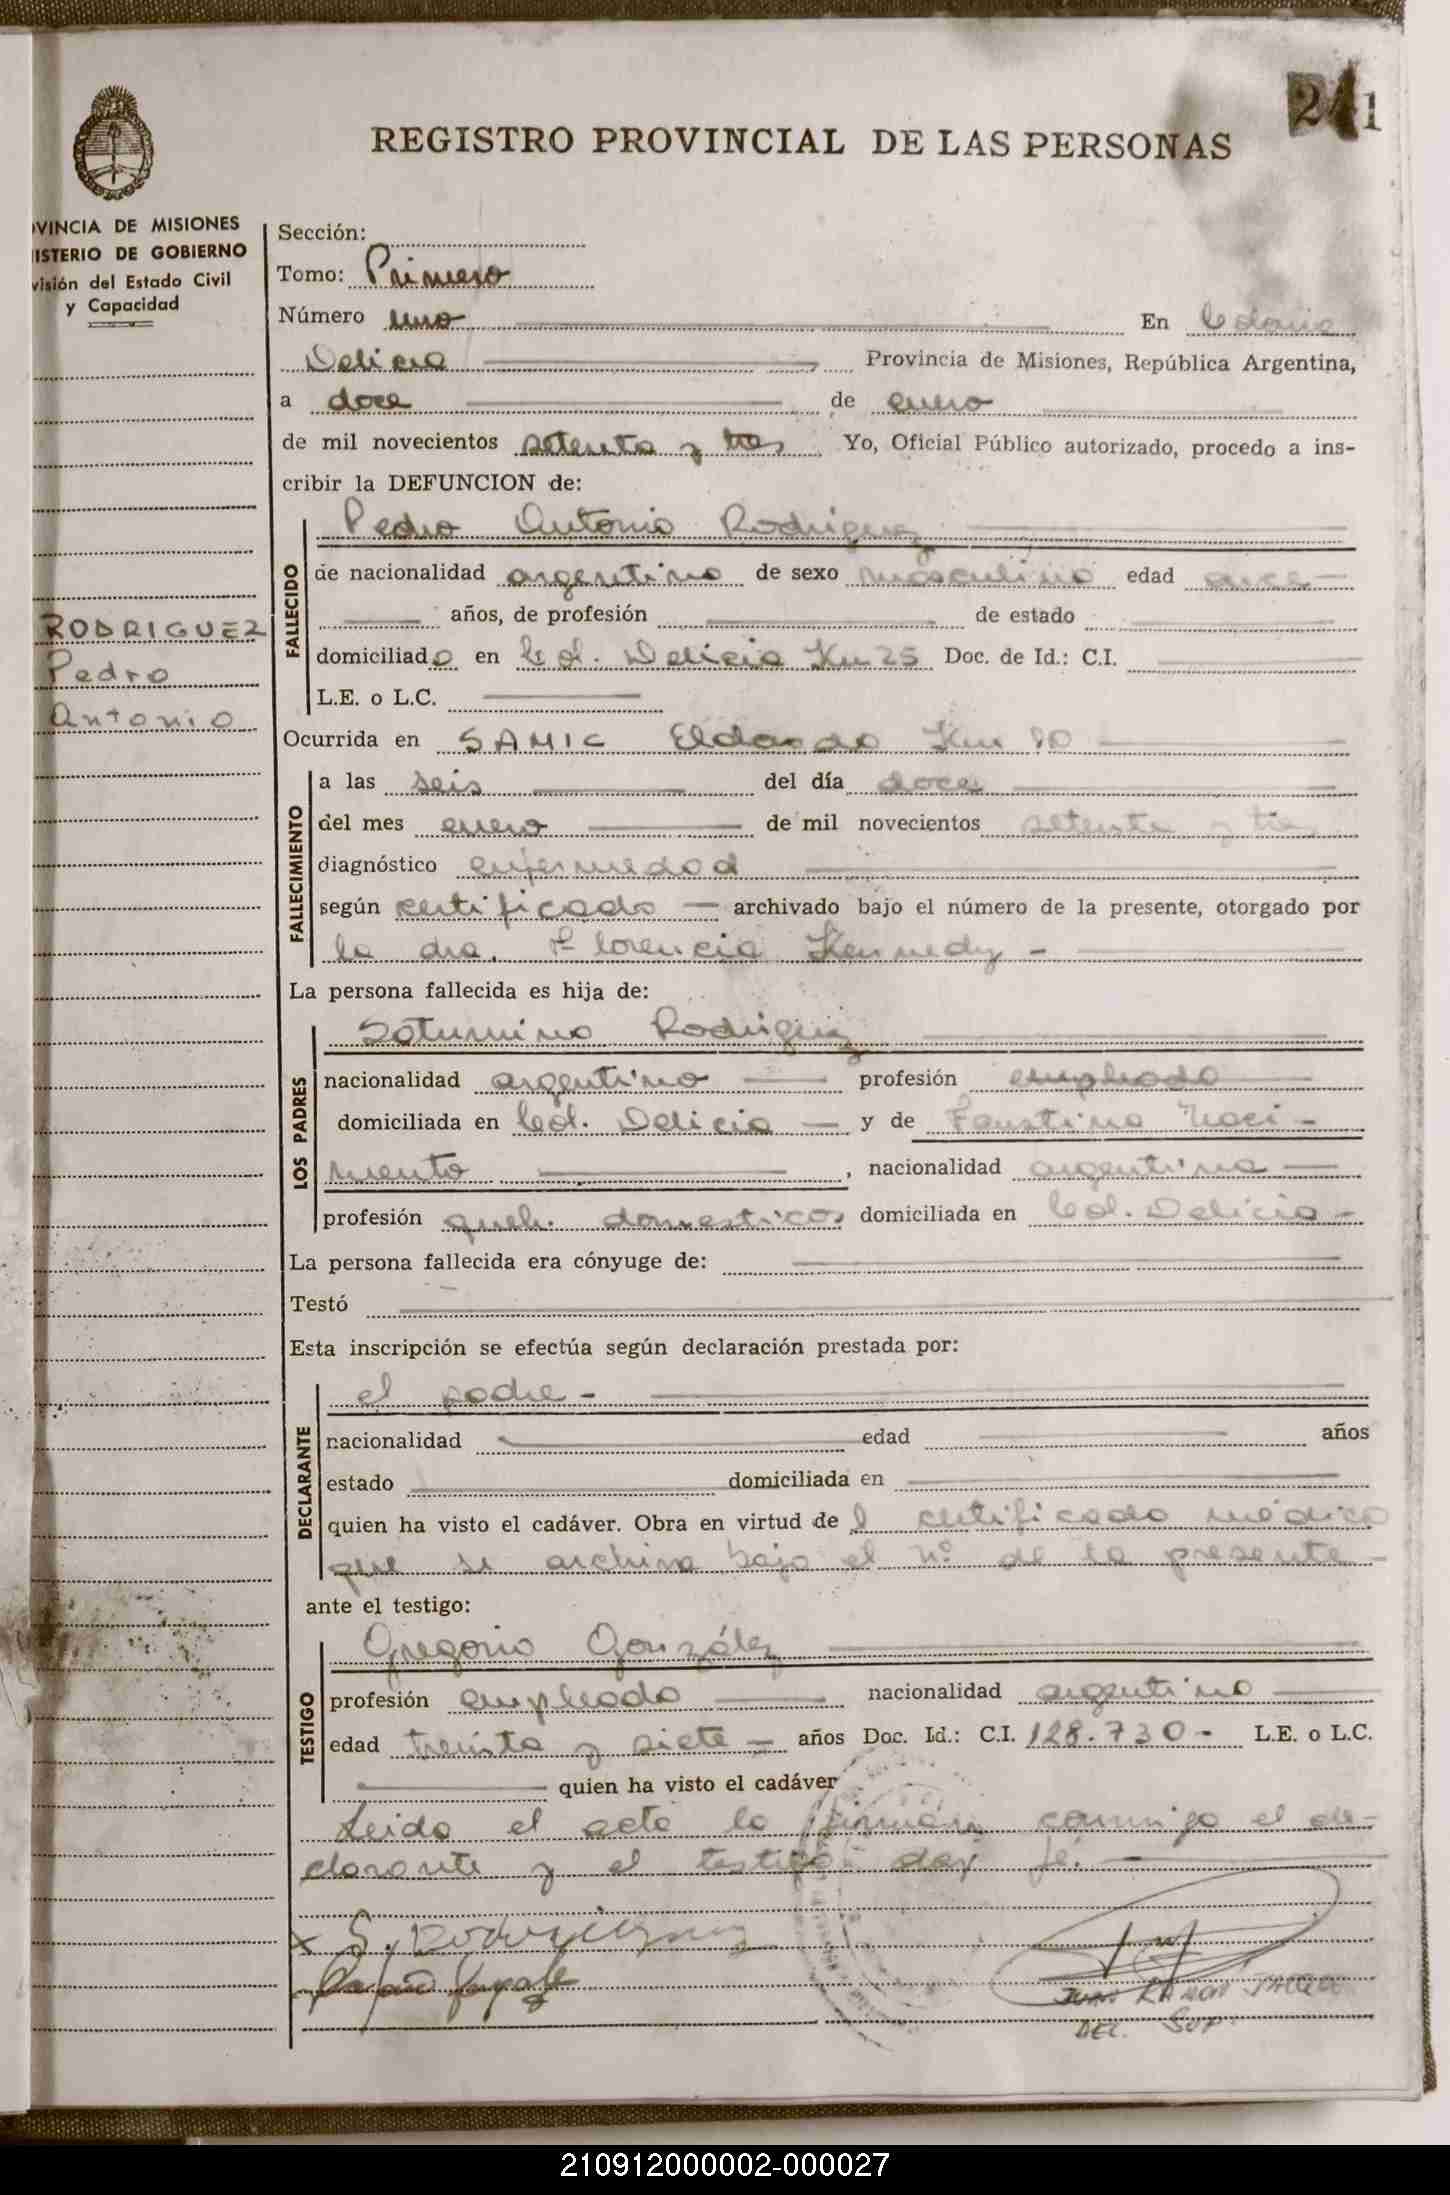 241
REGISTRO PROVINCIAL DE LAS PERSONAS
VINCIA DE MISIONES
ISTERIO DE GOBIERNO
visión del Estado Civil
y Capacidad
Sección:
Tomo: Primero
Número uno En Colonia
Delicia Provincia de Misiones, República Argentina,
a doce de enero
de mil novecientos setenta y tres Yo, Oficial Público autorizado, procedo a ins-
cribir la DEFUNCION de:
Pedro Antonio Rodriguez
FALLECIDO
de nacionalidad argentino de sexo masculino edad
años, de profesión de estado
RODRIGUEZ
Pedro
Antonio
domiciliado en Col. Delicia Km 25 Doc. de Id.: C.I.
L.E. o L.C.
Ocurrida en SAMIC Eldorado Km 10
FALLECIMIENTO
a las seis del día doce
del mes enero de mil novecientos setenta y tres
diagnóstico enfermedad
según certificado — archivado bajo el número de la presente, otorgado por
la dra. Florencia Kennedy -
La persona fallecida es hija de:
Saturnino Rodriguez
LOS PADRES
nacionalidad argentino profesión empleado
domiciliada en Col. Delicia — y de Faustina Naci-
miento , nacionalidad argentina —
profesión queh. domesticos domiciliada en Col. Delicia -
La persona fallecida era cónyuge de:
Testó
Esta inscripción se efectúa según declaración prestada por:
el padre -
DECLARANTE
nacionalidad edad años
estado domiciliada en
quien ha visto el cadáver. Obra en virtud de l certificado médico
que se archiva bajo el nº de la presente -
ante el testigo:
Gregorio González
TESTIGO
profesión empleado nacionalidad argentino
edad treinta y siete - años Doc. Id.: C.I. 128.730- L.E. o L.C.
quien ha visto el cadáver
Leida el acta la firman conmigo el de-
clarante y el testigo doy fé.
x S. Rodriguez
JUAN RAMON
DEL. SUP.
210912000002-000027